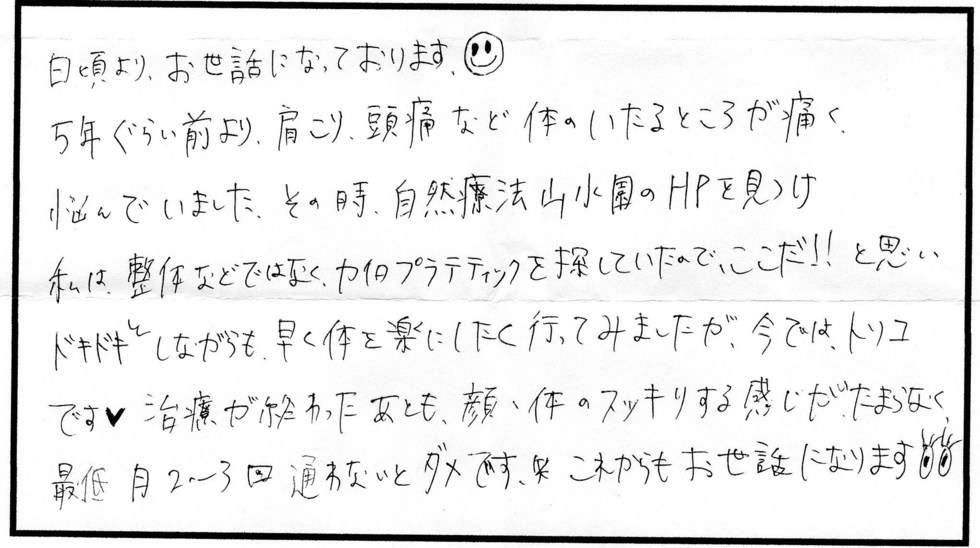 日頃より、お世話になっております。
5年ぐらい前より、肩こり、頭痛など体のいたるところが痛く、
悩んでいました。その時、自然療法山水園のHPを見つけ
私は、整体などではなく、カイロプラテティックを探していたので、ここだ!!と思い
ドキドキとしながらも、早く体を楽にしたく行ってみましたが、今では、トリコ
です♥ 治療が終わったあとも、顔、体のスッキリする感じが、たまらなく、
最低月2〜3回通わないとダメです、笑 これからもお世話になります